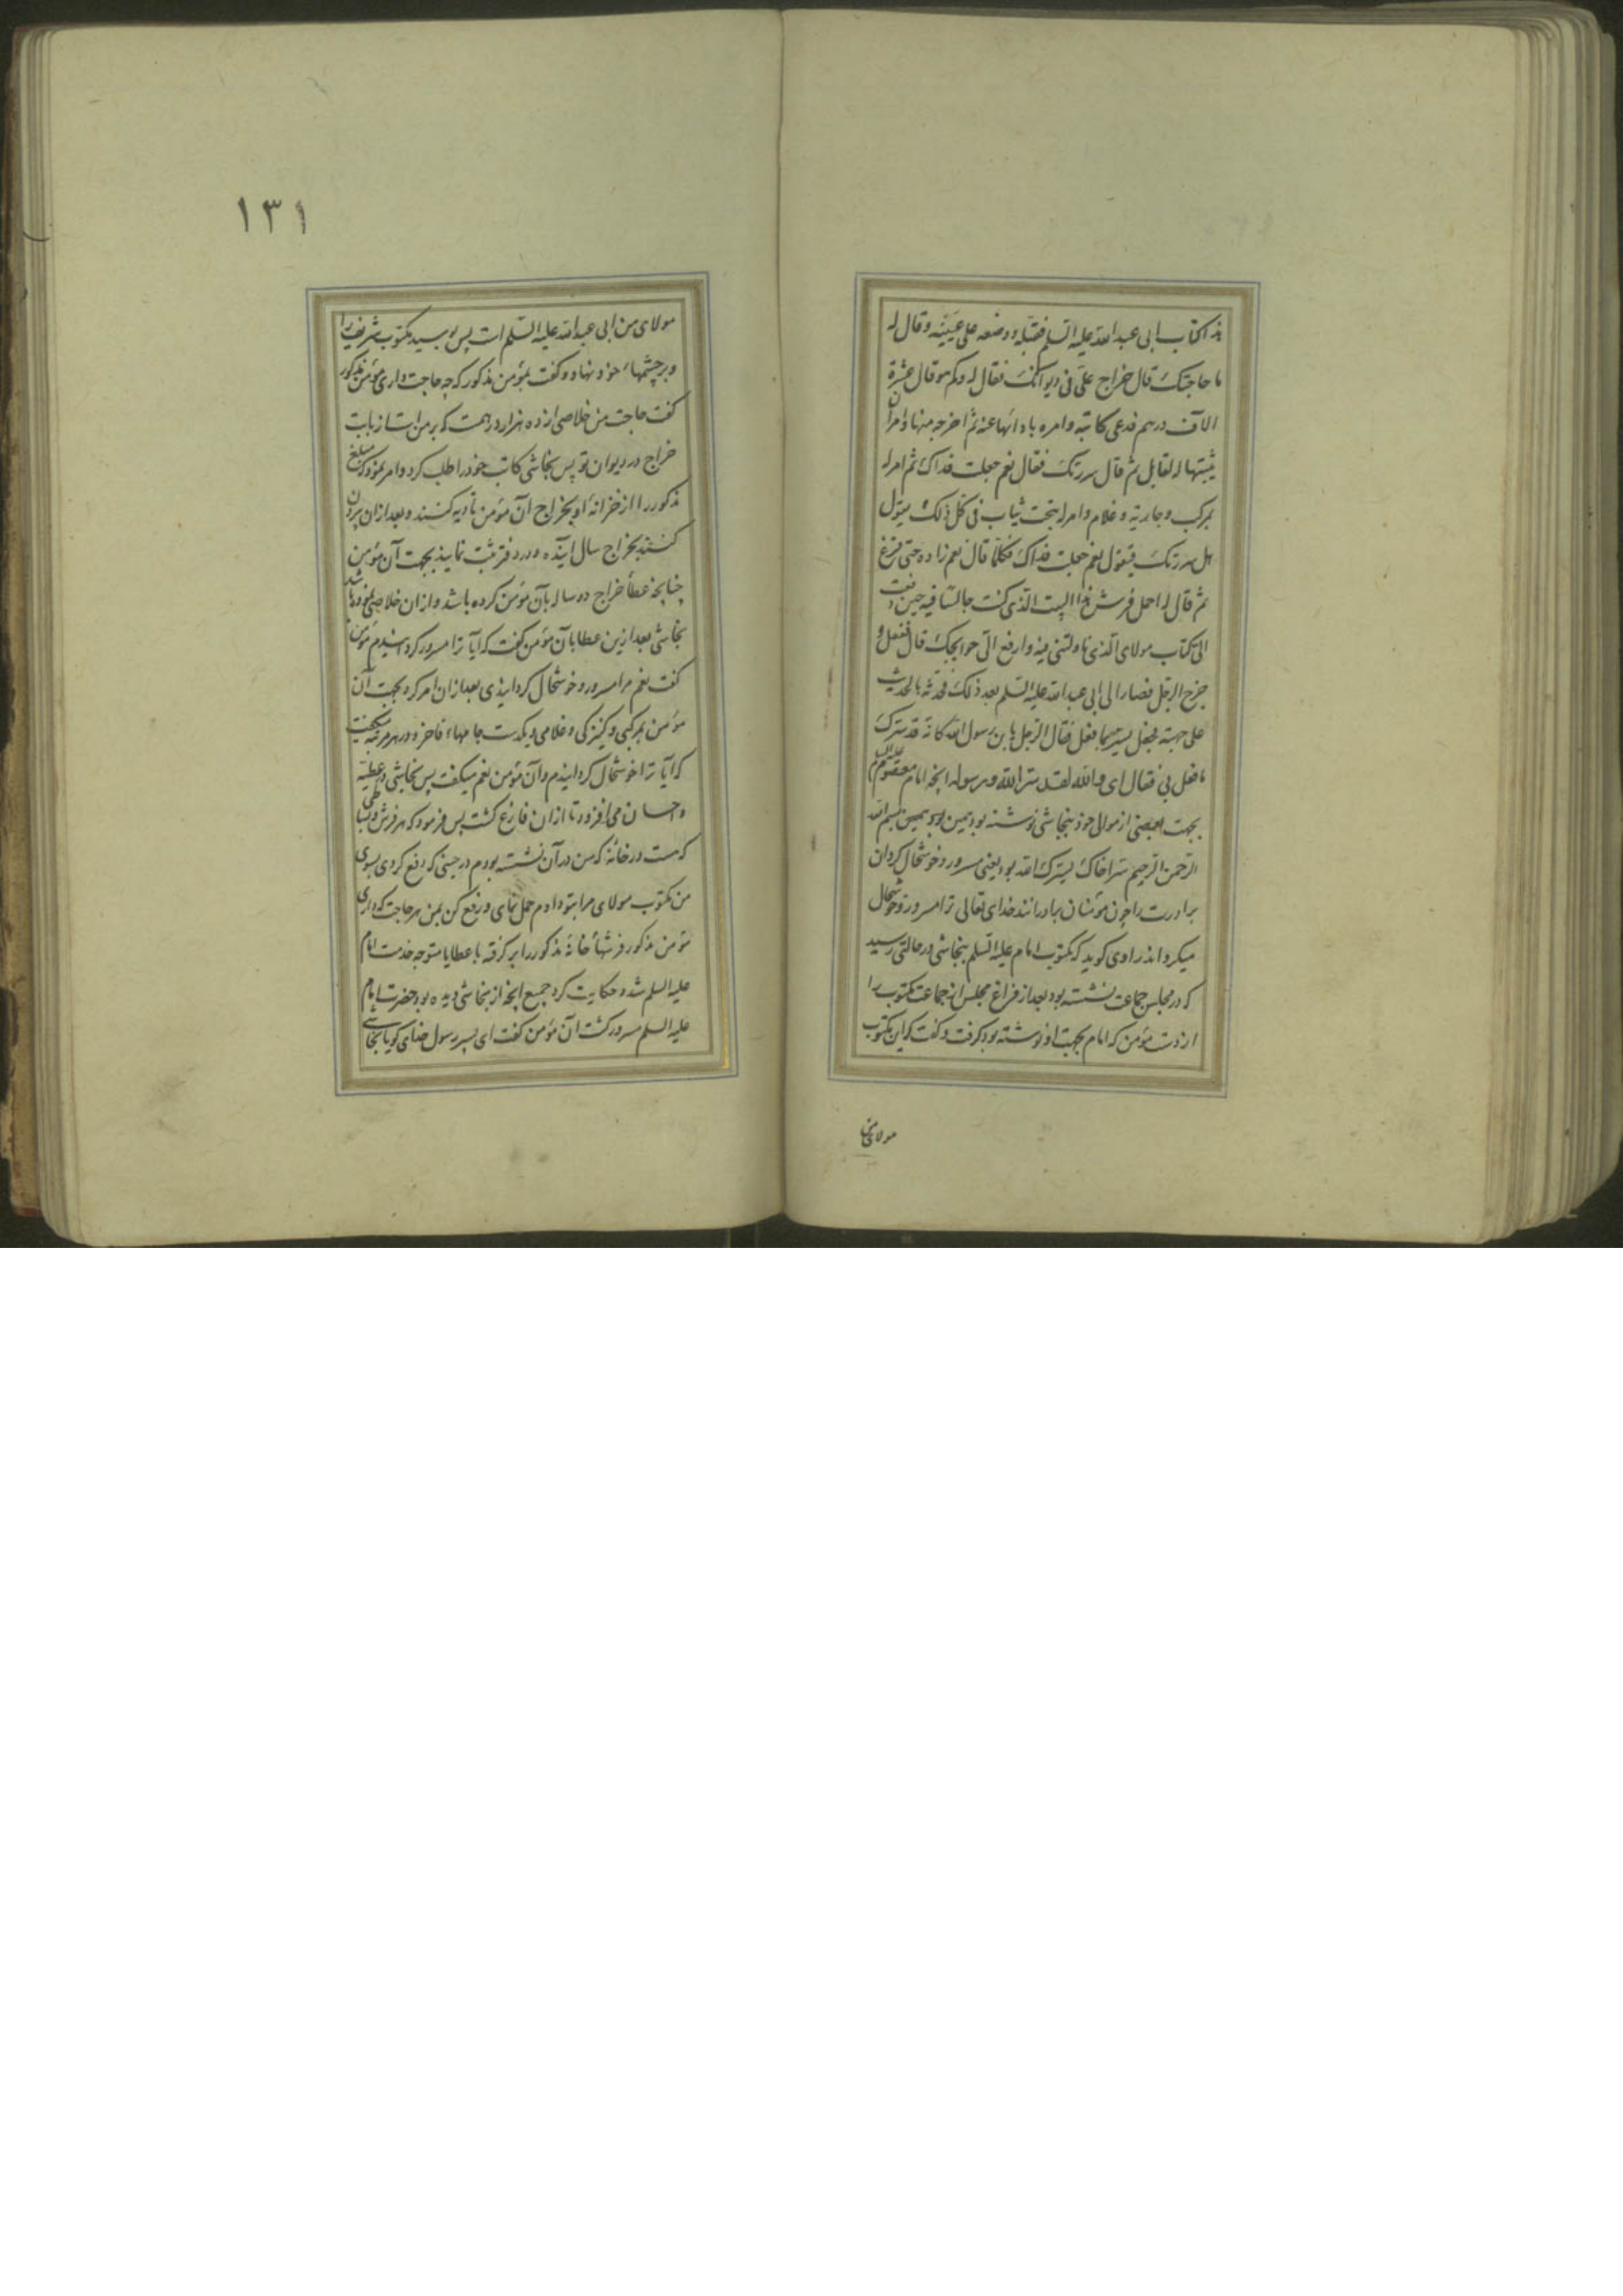 هذا كتاب ابی عبد الله علیه السلم فقبّله و وضعه علی عینیه و قال له
ما حاجتک قال خراج علیّ فی دیوانک فقال له و کم هو قال عشرة
الآف درهم فدعی کاتبه و امره بادائها عنه ثم اخرجه منها و امر ان
یثبتها له لقابل ثم قال سررتک فقال نعم جعلت فداک ثم امر له
بمرکب و جاریة و غلام و امر له بتخت ثیاب فی کل ذلک یقول
هل سررتک فیقول نعم جعلت فداک فکلما قال نعم زاده حتی فرغ
ثم قال له احمل فرش هذا البیت الذی کنت جالسا فیه حین دفعت
الیّ کتاب مولای الذی ناولتنی فیه و ارفع الیّ حوایجک قال ففعل و
خرج الرجل فصار الی ابی عبد الله علیه السلم بعد ذلک فحدثه بالحدیث
علی جهته فجعل یستر بما فعل فقال الرجل یابن رسول الله کانه قد سرک
ما فعل بی فقال ای و الله لقد سر الله و رسوله انچه امام معصوم علیه السلم
بجهت بعضی از موالی خود بنجاشی نوشته بود همین بود بسم الله
الرحمن الرحیم سر اخاک یسرک الله بود یعنی مسرور و خوشحال کردان
برادرت را چون مؤمنان برادرانند خدای تعالی ترا مسرور و خوشحال
میکرداند راوی کوید که مکتوب امام علیه السلم بنجاشی در حالتی رسید
که در مجلس جماعت نشسته بود بعد از فراغ مجلس از جماعت مکتوب را
از دست مؤمن که امام بجهت او نوشته بود کرفت و کفت که این مکتوب
مولای من
١٣١
مولای من ابی عبد الله علیه السلم است پس بوسید مکتوب شریف را
و بر چشمهاء خود نهاد و کفت بمؤمن مذکور که چه حاجت داری مؤمن مذکور
کفت حاجت من خلاصی از ده هزار درهمست که بر من است از بابت
خراج در دیوان تو پس نجاشی کاتب خود را طلب کرد و امر نمود که مبلغ
مذکور را از خزانه او بخراج آن مؤمن تادیه کنند و بعد از ان بیرون
کنند بخراج سال آینده و در دفتر ثبت نمایند بجهت آن مؤمن
چنانچه عطاء خراج دو ساله بآن مؤمن کرده باشد و از ان خلاصی نموده باشد
نجاشی بعد ازین عطا بآن مؤمن کفت که آیا ترا مسرور کردانیدم مؤمن
کفت نعم مرا مسرور و خوشحال کردانیدی بعد از ان امر کرد بجهت آن
مؤمن بمرکبی و کنیزکی و غلامی و یکدست جامهاء فاخر و در هر مرتبه میکفت
که آیا ترا خوشحال کردانیدم و آن مؤمن نعم میکفت پس نجاشی در عطیه
و احسان می افزود تا از ان فارغ کشت پس فرمود که هر فرش و بساطی
که هست در خانه که من در آن نشسته بودم در حینی که رفع کردی بسوی
من مکتوب مولای مرا بتو دادم حمل نمای و رفع کن بمن هر حاجت که داری
مؤمن مذکور فرشهاء خانه مذکور را بر کرفته با عطایا متوجه خدمت امام
علیه السلم شد و حکایت کرد جمیع انچه از نجاشی دیده بود حضرت امام
علیه السلم مسرور کشت آن مؤمن کفت ای پسر رسول خدای کویا نجاشی